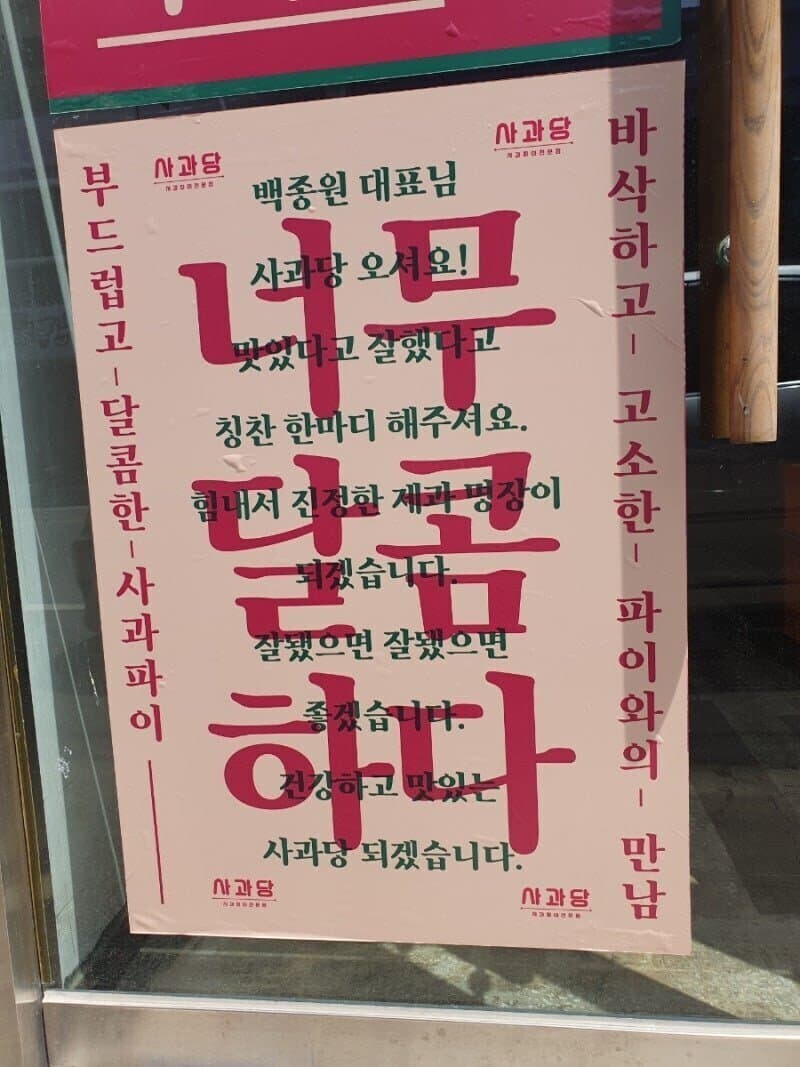 사과당
사과파이전문점
사과당
사과파이전문점
부드럽고-달콤한-사과파이
바삭하고-고소한-파이와의-만남
너무
달콤
하다
백종원 대표님
사과당 오셔요!
맛있다고 잘했다고
칭찬 한마디 해주셔요.
힘내서 진정한 제과 명장이
되겠습니다.
잘됐으면 잘됐으면
좋겠습니다.
건강하고 맛있는
사과당 되겠습니다.
사과당
사과파이전문점
사과당
사과파이전문점